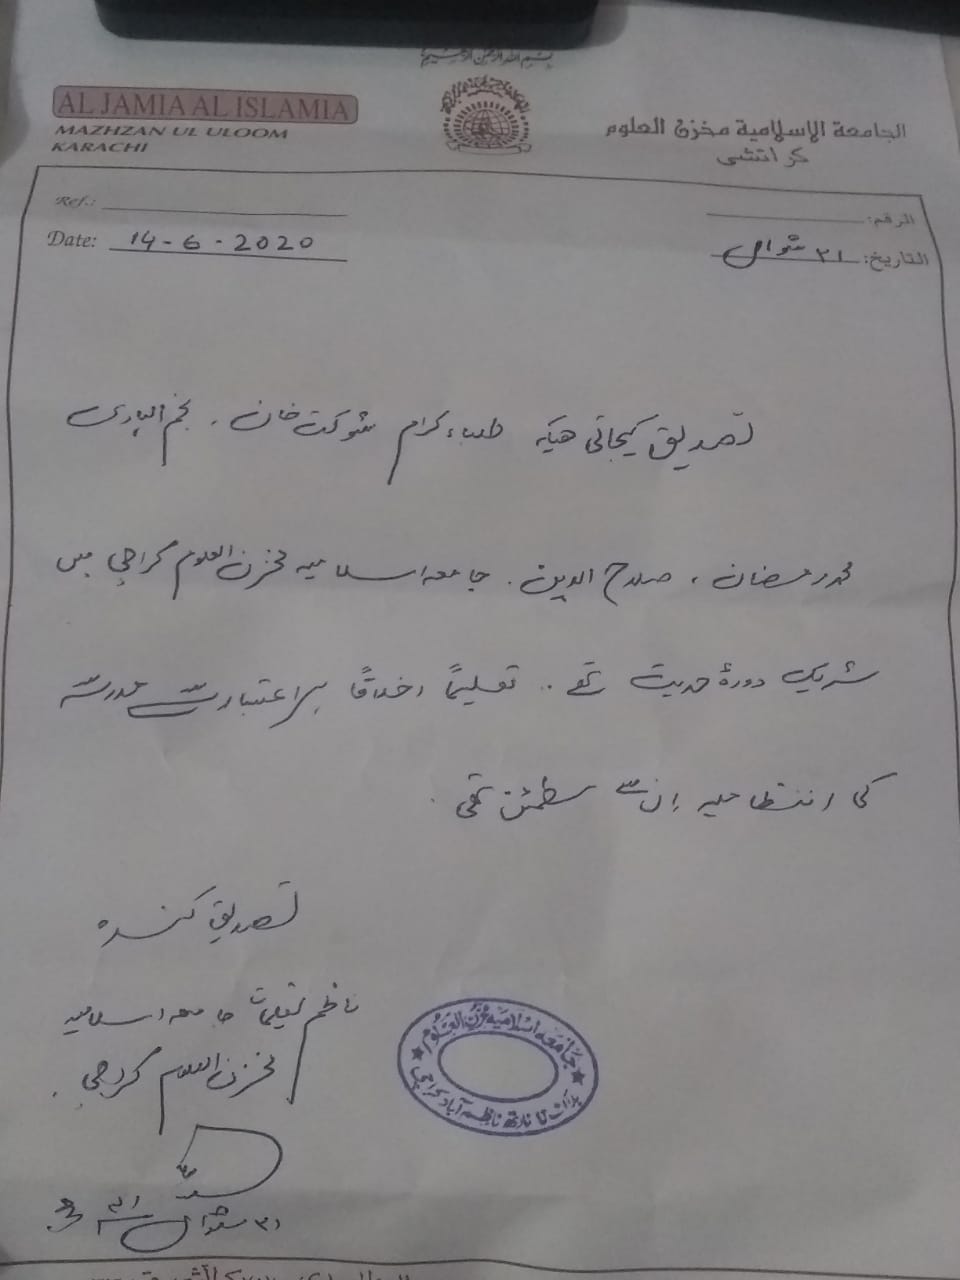 بسم الله الرحمن الرحيم
AL JAMIA AL ISLAMIA
MAZHZAN UL ULOOM
KARACHI
الجامعة الإسلامية مخزن العلوم
كراتشي
Ref.:
الرقم:
Date: 14-6-2020
التاريخ: ٢١ شوال
تصدیق کیجاتی ھیکہ طلباء کرام شوکت خان، نجم الہادی
محمد رمضان، صلاح الدین۔ جامعہ اسلامیہ مخزن العلوم کراچی میں
شریک دورۂ حدیث تھے۔ تعلیماً اخلاقاً ہر اعتبار سے مدرسے
کی انتظامیہ ان سے مطمئن تھی۔
تصدیق کنندہ
ناظم تعلیمات جامعہ اسلامیہ
مخزن العلوم کراچی
جامعہ اسلامیہ مخزن العلوم
نارتھ ناظم آباد کراچی
٢١ شوال